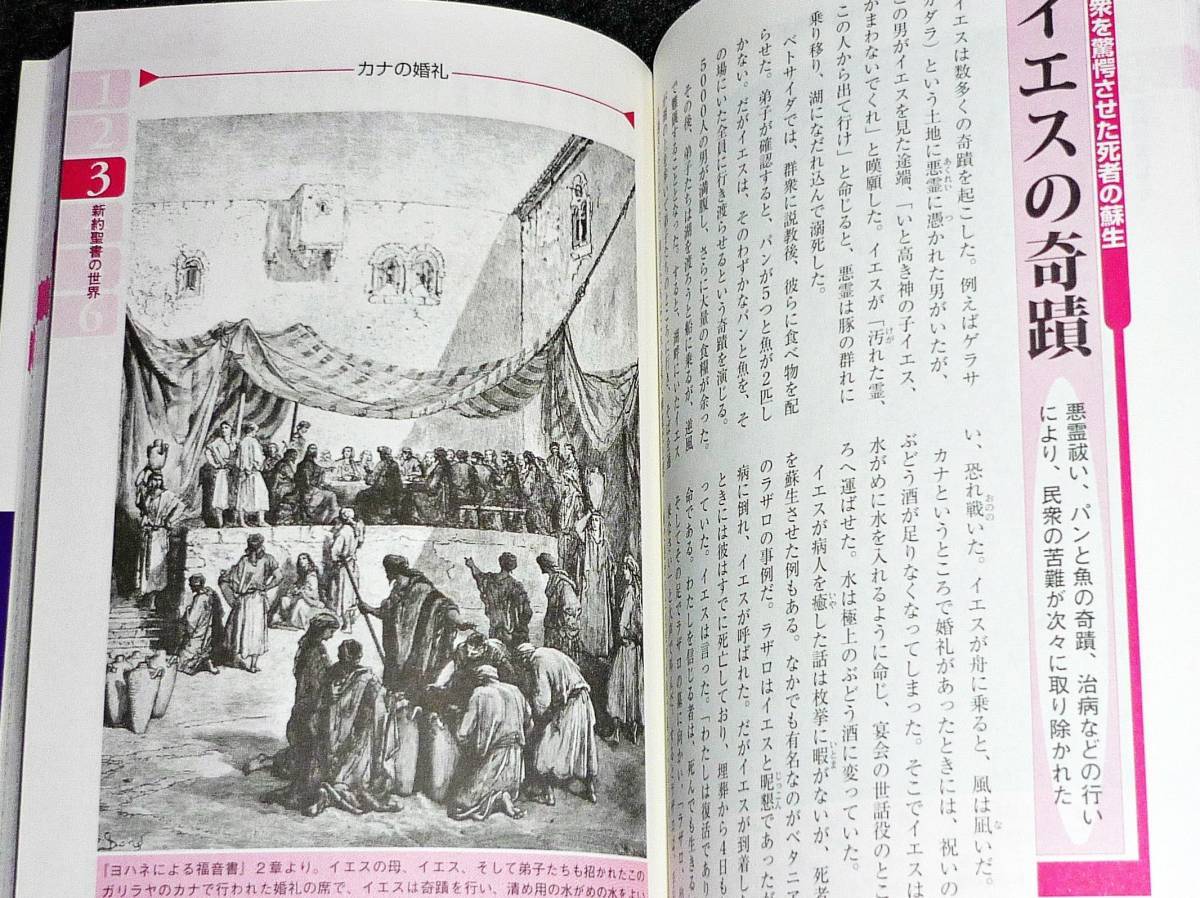 衆を驚愕させた死者の蘇生
イエスの奇蹟
悪霊祓い、パンと魚の奇蹟、治病などの行い
により、民衆の苦難が次々に取り除かれた
イエスは数多くの奇蹟を起こした。例えばゲラサ
ガダラ）という土地に悪霊に憑かれた男がいたが、
この男がイエスを見た途端、「いと高き神の子イエス、
かまわないでくれ」と嘆願した。イエスが「汚れた霊、
この人から出て行け」と命じると、悪霊は豚の群れに
乗り移り、湖になだれ込んで溺死した。
ベトサイダでは、群衆に説教後、彼らに食べ物を配
らせた。弟子が確認すると、パンが５つと魚が２匹し
かない。だがイエスは、そのわずかなパンと魚を、そ
の場にいた全員に行き渡らせるという奇蹟を演じる。
5000人の男が満腹し、さらに大量の食糧が余った。
その後、弟子たちは湖を渡ろうと船に乗るが、逆風
で難儀することとなった。すると、湖畔にいたイエス
い、恐れ戦いた。イエスが舟に乗ると、風は凪いだ。
カナというところで婚礼があったときには、祝いの
ぶどう酒が足りなくなってしまった。そこでイエスは
水がめに水を入れるように命じ、宴会の世話役のとこ
ろへ運ばせた。水は極上のぶどう酒に変っていた。
イエスが病人を癒した話は枚挙に暇がないが、死者
を蘇生させた例もある。なかでも有名なのがベタニア
のラザロの事例だ。ラザロはイエスと昵懇であったが
病に倒れ、イエスが呼ばれた。だがイエスが到着した
ときには彼はすでに死亡しており、埋葬から４日も
っていた。イエスは言った。「わたしは復活であり
命である。わたしを信じる者は、死んでも生きる
そしてその足でラザロの墓に向かい「ラザロ
カナの婚礼
1
2
3
新約聖書の世界
6
『ヨハネによる福音書』２章より。イエスの母、イエス、そして弟子たちも招かれたこの
ガリラヤのカナで行われた婚礼の席で、イエスは奇蹟を行い、清め用の水がめの水をよい